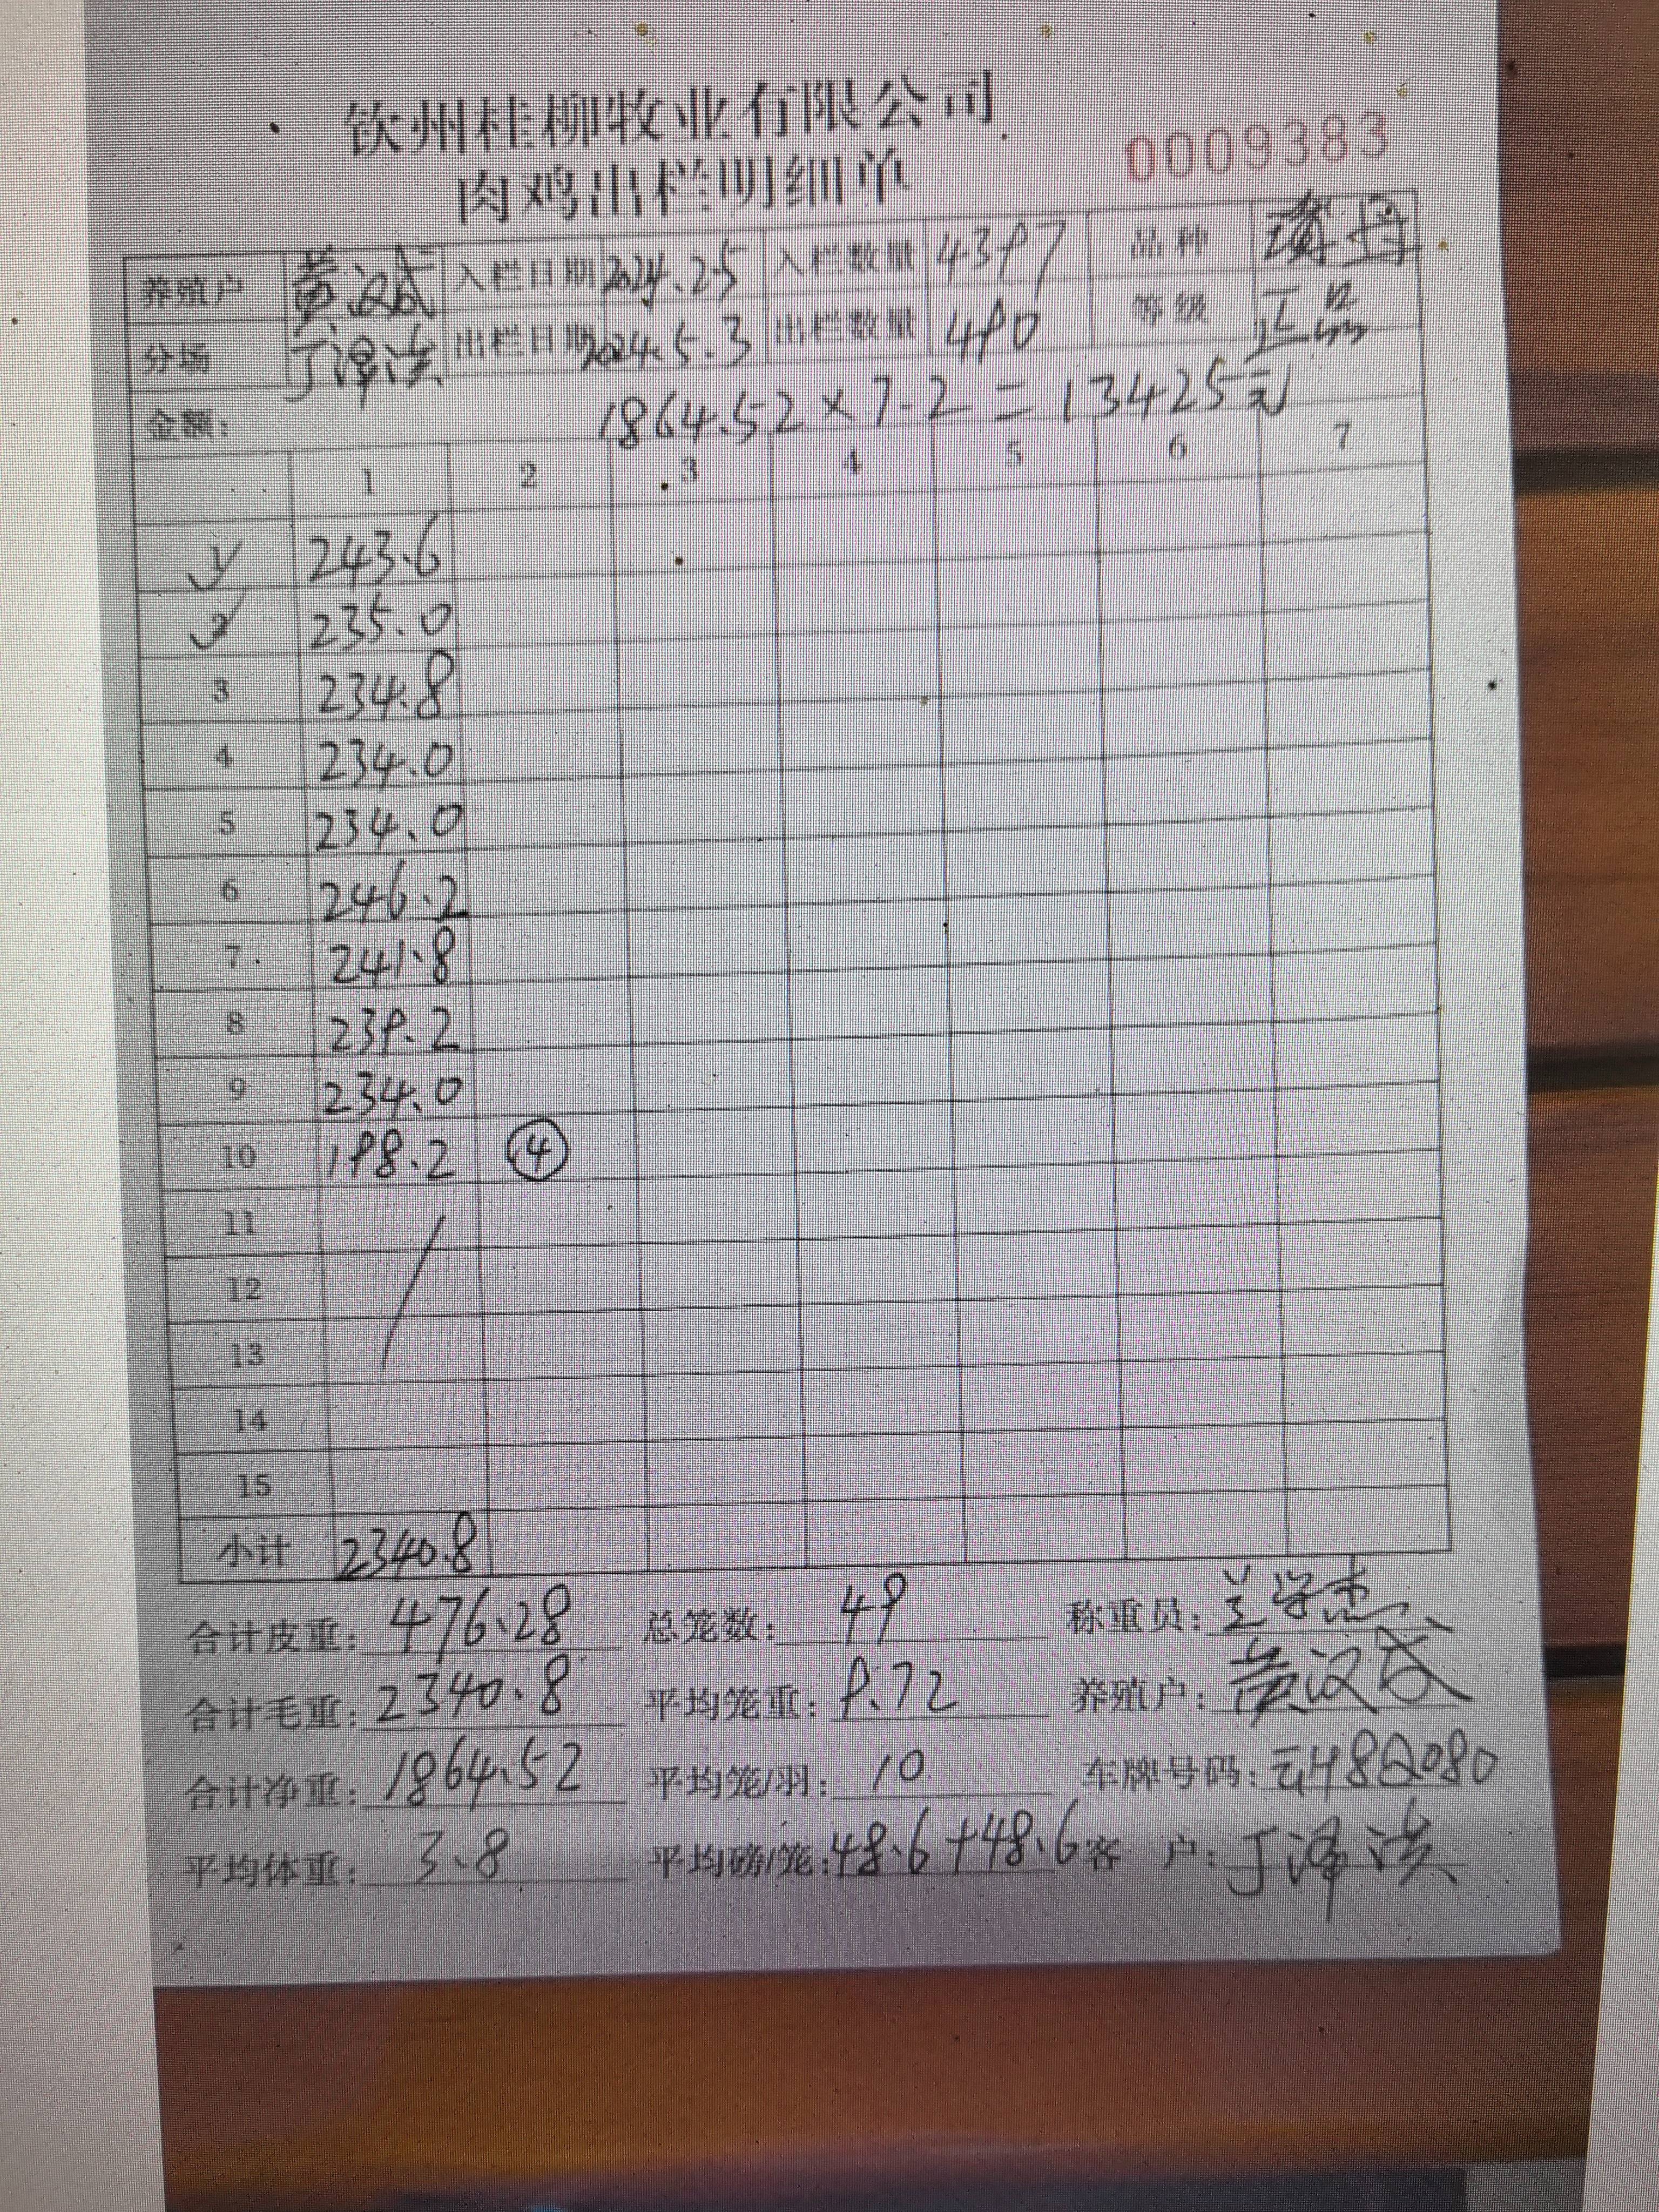 钦州桂柳牧业有限公司
肉鸡出栏明细单
0009383
养殖户 黄汉成 入栏日期 2024.2.5 入栏数量 4397 品种
分场 丁泽洪 出栏日期 2024.5.3 出栏数量 490 等级 正品
金额: 1864.52×7.2=13425元
1 2 3 4 5 6 7
1 243.6
2 235.0
3 234.8
4 234.0
5 234.0
6 246.2
7 241.8
8 239.2
9 234.0
10 198.2 ④
11
12
13
14
15
小计 2340.8
合计皮重: 476.28 总笼数: 49 称重员:
合计毛重: 2340.8 平均笼重: 9.72 养殖户: 黄汉成
合计净重: 1864.52 平均笼/羽: 10 车牌号码: 云H8Q080
平均体重: 3.8 平均磅/笼: 48.6+48.6 客 户: 丁泽洪